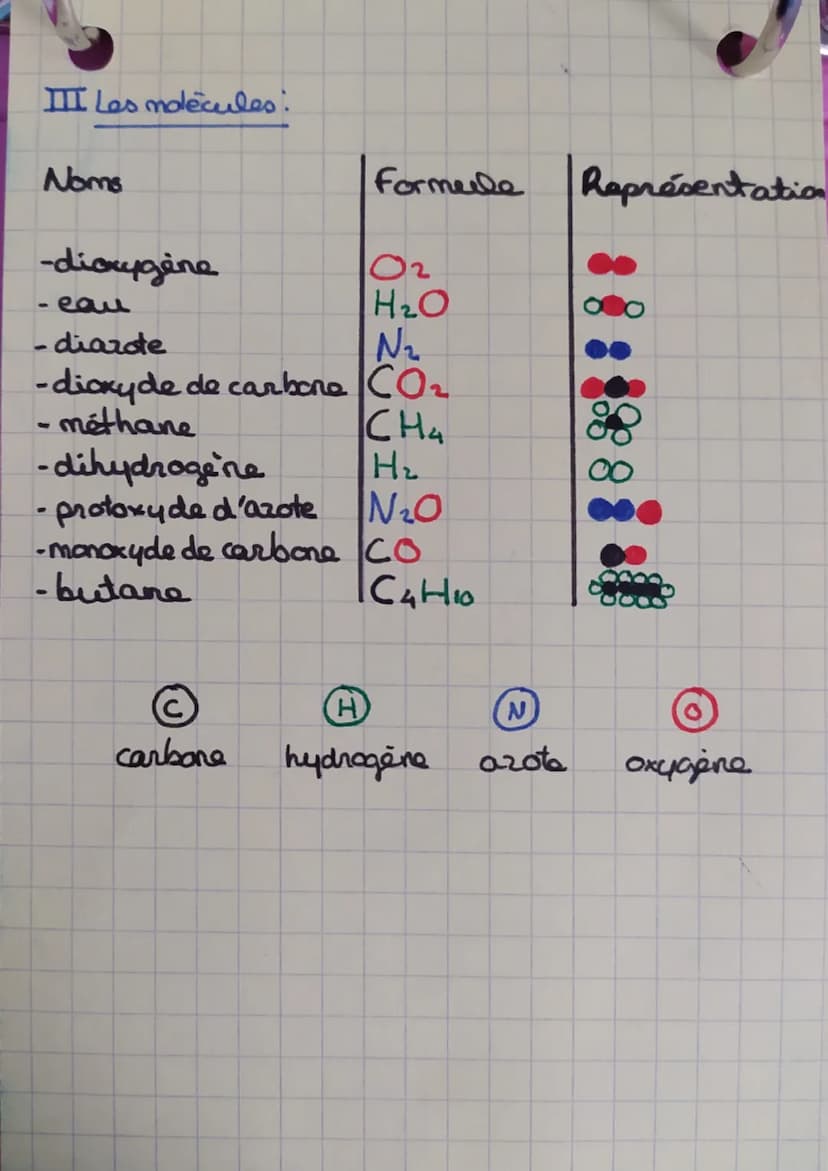 III Les molécules:
Noms Formule Représentation
-dioxygène O2
- eau H2O
- diazote N2
-dioxyde de carbone CO2
- méthane CH4
-dihydrogène H2
- protoxyde d'azote N2O
-monoxyde de carbone CO
- butane C4H10
C H N O
carbone hydrogène azote oxygène